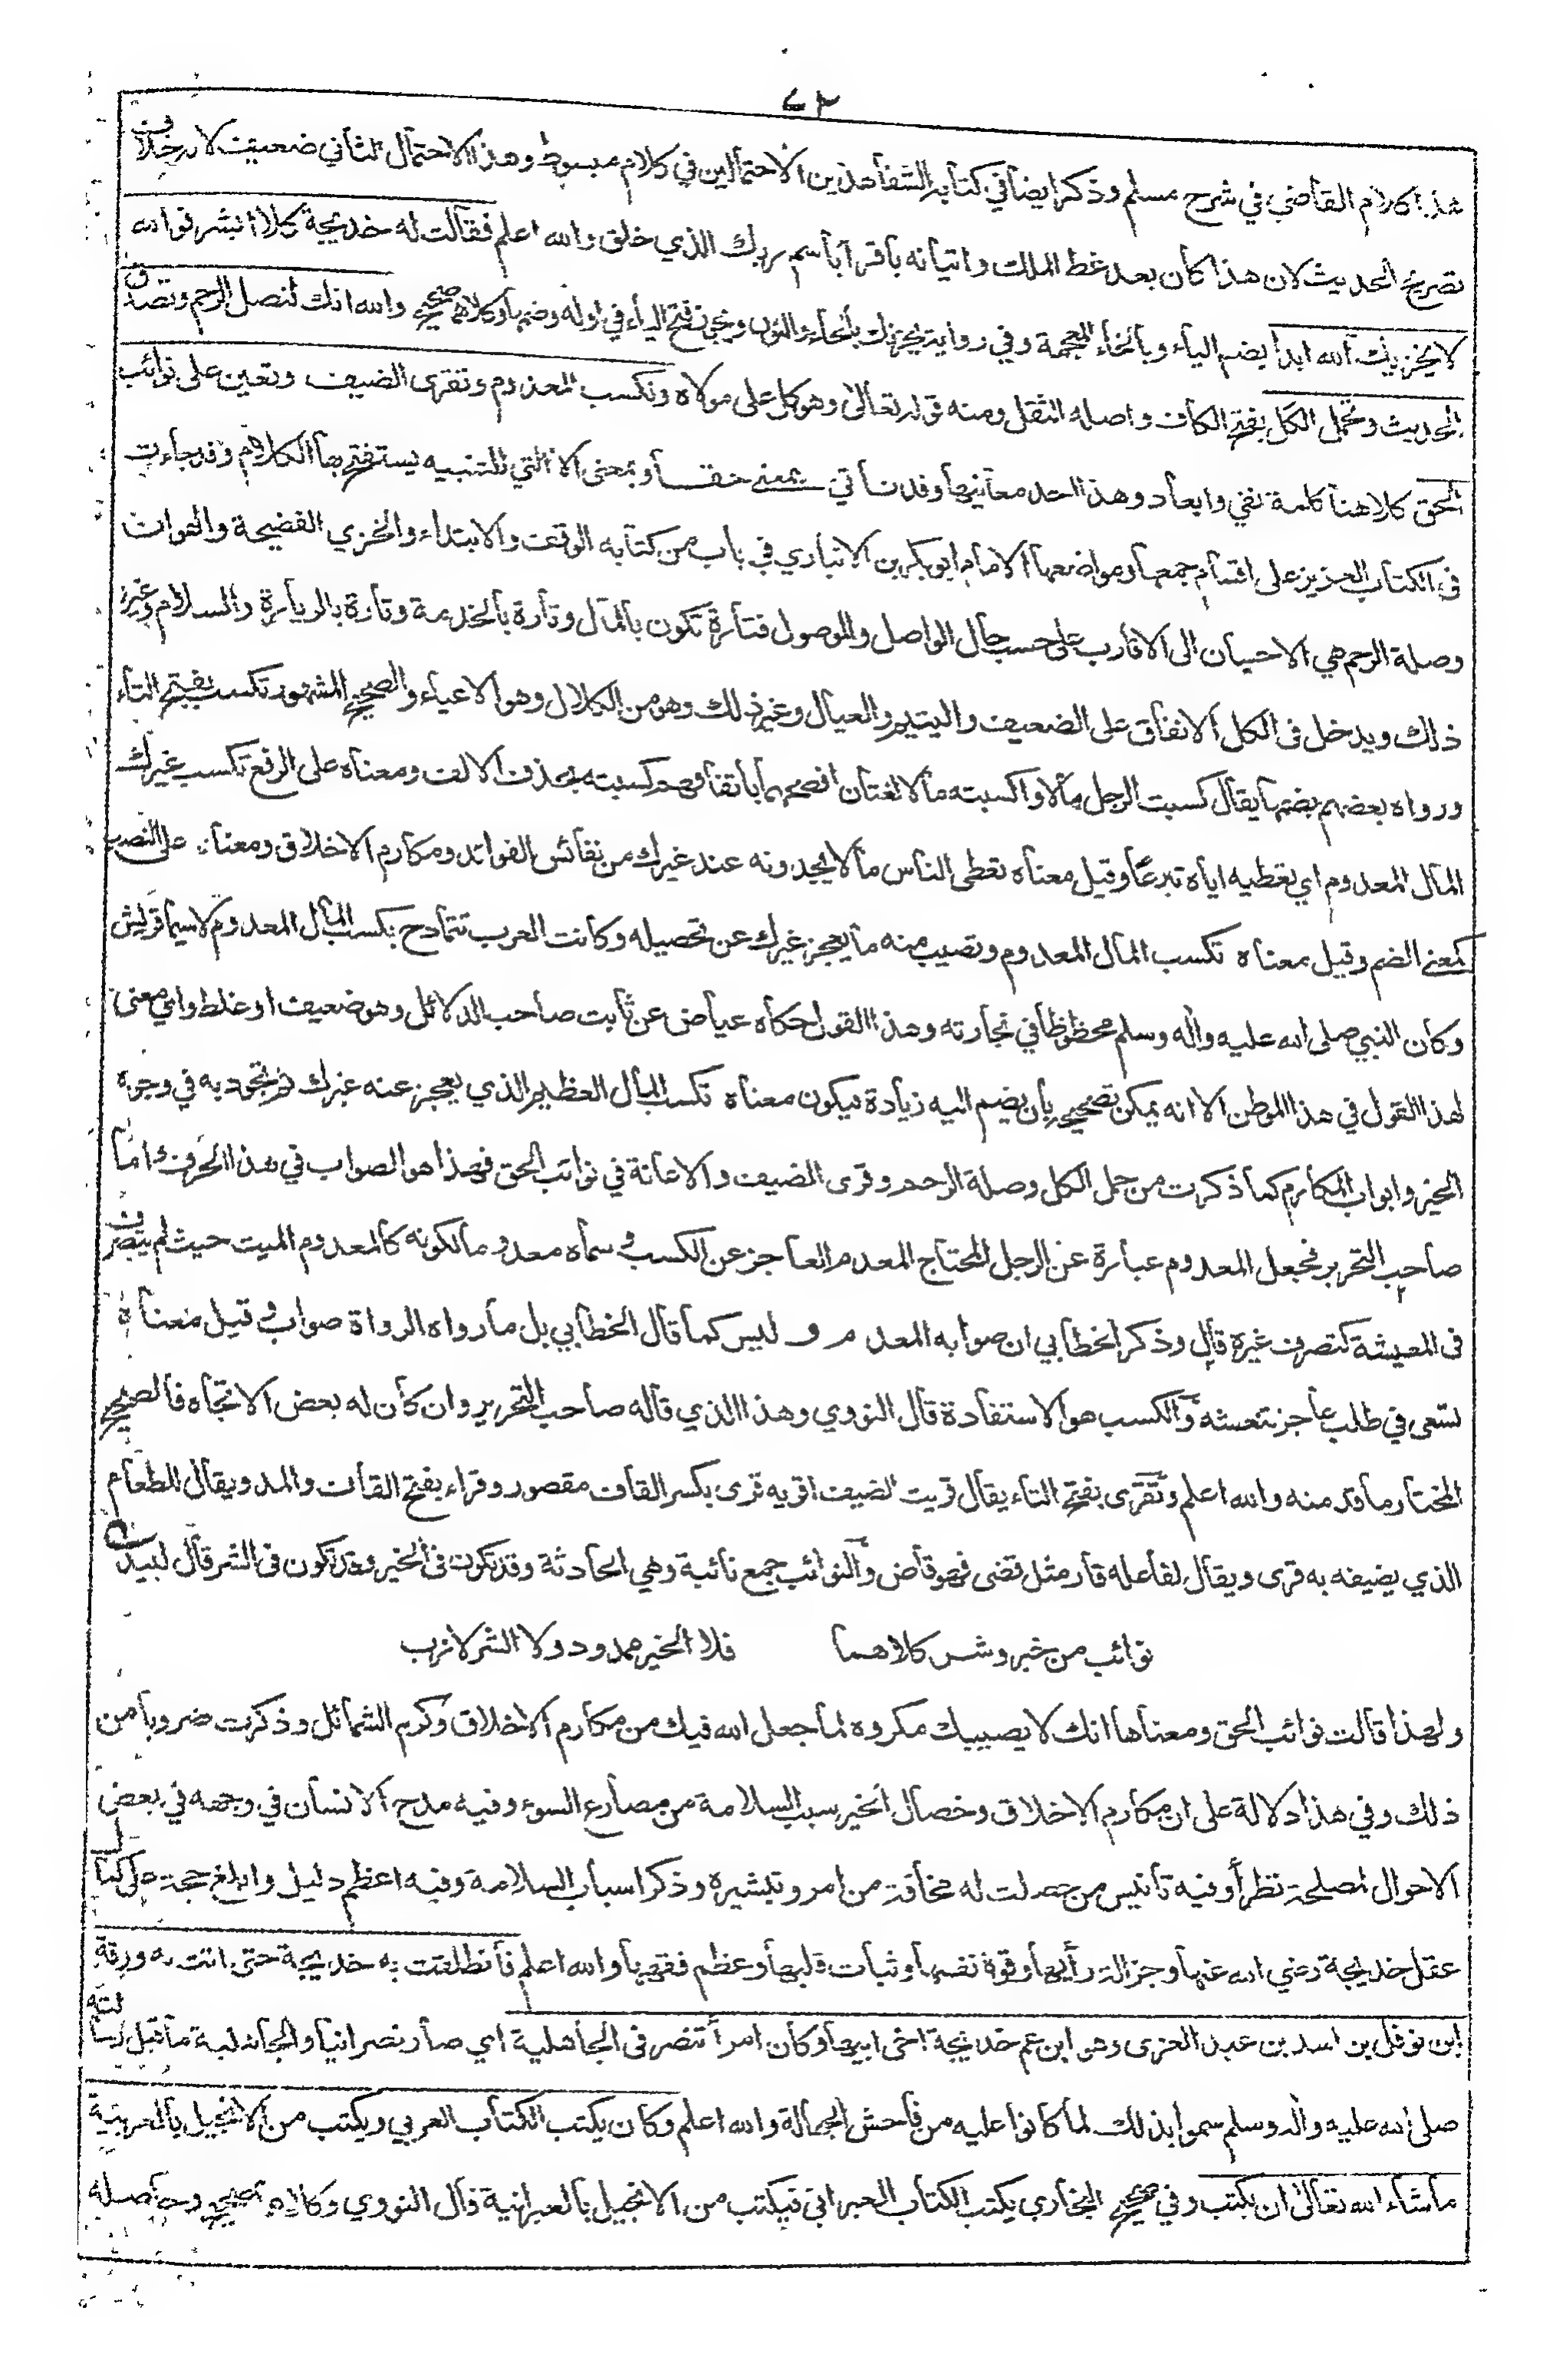 ٧٢
هذا كلام القاضي في شرح مسلم وذكر ايضا في كتابه الشفا هذين الاحتمالين في كلام مبسوط وهذا الاحتمال الثاني ضعيف لانه خلاف
تصريح الحديث لان هذا كان بعد غط الملك واتيانه باقرأ باسم ربك الذي خلق والله اعلم فقالت له خديجة كلا ابشر فوالله
لا يخزيك الله ابدا بضم الياء وبالخاء المعجمة وفي رواية يحزنك بالحاء والنون ويجوز فتح الياء في اوله وضمها وكلاهما صحيح والله انك لتصل الرحم وتصدق
الحديث وتحمل الكل بفتح الكاف واصله الثقل ومنه قوله تعالى وهو كل على مولاه وتكسب المعدوم وتقرى الضيف وتعين على نوائب
الحق كلا هنا كلمة نفي وابعاد وهذا احد معانيها وقد تأتي بمعنى حقا وبمعنى الا التي للتنبيه يستفتح بها الكلام وقد جاءت
في الكتاب العزيز على اقسام جمعها ومواضعها الامام ابو بكر بن الانباري في باب من كتابه الوقف والابتداء والخزي الفضيحة والهوان
وصلة الرحم هي الاحسان الى الاقارب على حسب حال الواصل والموصول فتارة تكون بالمال وتارة بالخدمة وتارة بالزيارة والسلام وغير
ذلك ويدخل في الكل الانفاق على الضعيف واليتيم والعيال وغير ذلك وهو من الكلال وهو الاعياء والصحيح المشهور تكسب بفتح التاء
ورواه بعضهم بضمها يقال كسبت الرجل مالا واكسبته مالا لغتان افصحهما باتفاقهم كسبته بحذف الالف ومعناه على الرفع تكسب غيرك
المال المعدوم اي تعطيه اياه تبرعا وقيل معناه تعطى الناس ما لا يجدونه عند غيرك من نفائس الفوائد ومكارم الاخلاق ومعناه على النصب
كمعنى الضم وقيل معناه تكسب المال المعدوم وتصيب منه ما يعجز غيرك عن تحصيله وكانت العرب تتمادح بكسب المال المعدوم لا سيما قريش
وكان النبي صلى الله عليه واله وسلم محظوظا في تجارته وهذا القول حكاه عياض عن ثابت صاحب الدلائل وهو ضعيف او غلط واي معنى
لهذا القول في هذا الموطن الا انه يمكن تصحيحه بان يضم اليه زيادة فيكون معناه تكسب المال العظيم الذي يعجز عنه غيرك ثم تجود به في وجوه
الخير وابواب المكارم كما ذكرت من حمل الكل وصلة الرحم وقرى الضيف والاعانة في نوائب الحق فهذا هو الصواب في هذا الحرف واما
صاحب التحرير فجعل المعدوم عبارة عن الرجل المحتاج المعدم العاجز عن الكسب وسماه معدوما لكونه كالمعدوم الميت حيث لم يتصرف
في المعيشة كتصرف غيره قال وذكر الخطابي ان صوابه المعدم وليس كما قال الخطابي بل ما رواه الرواة صواب وقيل معناه
تسعى في طلب عاجز تعيشه والكسب هو الاستفادة قال النووي وهذا الذي قاله صاحب التحرير وان كان له بعض الاتجاه فالصحيح
المختار ما قدمنه والله اعلم وتقرى بفتح التاء يقال قريت الضيف اقريه قرى بكسر القاف مقصور وقراء بفتح القاف والمد ويقال للطعام
الذي يضيفه به قرى ويقال لفاعله قار مثل قضى فهو قاض والنوائب جمع نائبة وهي الحادثة وقد تكون في الخير وقد تكون في الشر قال لبيد
نوائب من خير وشر كلاهما فلا الخير ممدود ولا الشر لازب
ولهذا قالت نوائب الحق ومعناها انك لا يصيبك مكروه لما جعل الله فيك من مكارم الاخلاق وكرم الشمائل وذكرت ضروبا من
ذلك وفي هذا دلالة على ان مكارم الاخلاق وخصال الخير سبب السلامة من مصارع السوء وفيه مدح الانسان في وجهه في بعض
الاحوال لمصلحة نظرا وفيه تأنيس من حصلت له مخافة من امر وتبشيره وذكر اسباب السلامة وفيه اعظم دليل وابلغ حجة على كمال
عقل خديجة رضي الله عنها وجزالة رأيها وقوة نفسها وثبات قلبها وعظم فقهها والله اعلم فانطلقت به خديجة حتى اتت به ورقة
ابن نوفل بن اسد بن عبد العزى وهو ابن عم خديجة اخي ابيها وكان امرأ تنصر في الجاهلية اي صار نصرانيا والجاهلية ما قبل رسالته
صلى الله عليه واله وسلم سموا بذلك لما كانوا عليه من فاحش الجهالة والله اعلم وكان يكتب الكتاب العربي ويكتب من الانجيل بالعربية
ما شاء الله تعالى ان يكتب وفي صحيح البخاري يكتب الكتاب العبراني فيكتب من الانجيل بالعبرانية قال النووي وكلاهما صحيح وحاصله